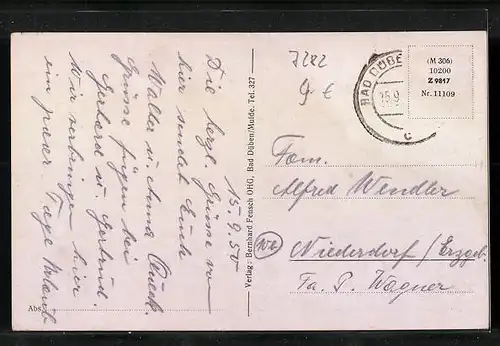 15.9.50
Die herzl. Grüsse von
hier sendet Euch
Walter u. Anna Quack.
Grüsse fügen bei
Gerhard u. Gertrud.
Wir verbringen hier
ein paar Tage Urlaub
Abs.
Verlag: Bernhard Fensch OHG, Bad Düben/Mulde. Tel. 327
7282
9 €
BAD DÜBE
15.9
c
(M 306)
10200
Z 9817
Nr. 11109
Fam.
Alfred Wendler
Niederdorf/Erzgeb.
Fa. P. Wagner